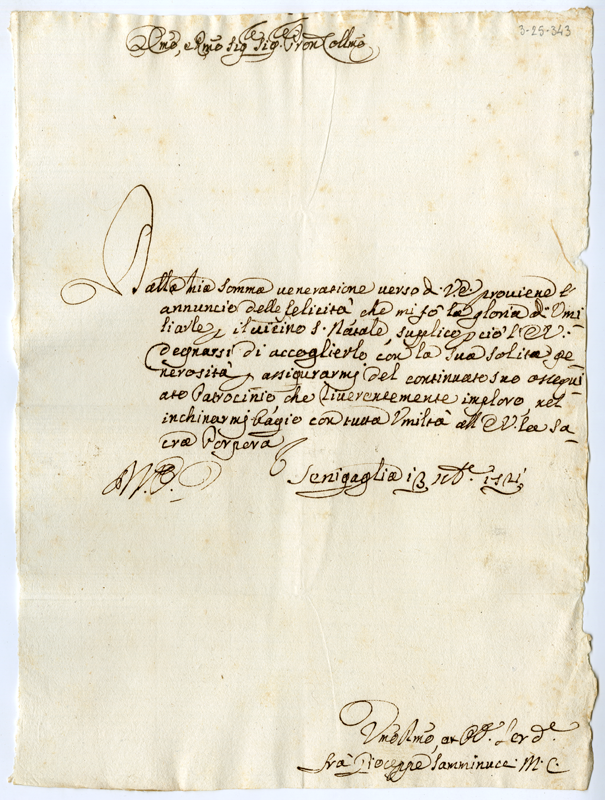 3-25-343
Emo, e Rmo Sig.re Sig.re Pron Collmo
Dalla mia somma venerazione verso d. V.E. proviene l'
annuncio delle felicità che mi fò la gloria di Umi-
liarle p il vicino S. Natale, supplico pciò l'E.V.
degnarsi di accoglierlo con la sua solita ge-
nerosità, e assigurarmi del continuato suo ossequi-
ato Patrocinio che riverentemente imploro, nel
inchinarmi bagio con tutta Umiltà all'E.V. la Sa-
cra Porpora
D.V.E. Senigaglia 13 Xbre
Umo Rmo, et Obb. Ser de
frà Gioseppe Samminuce M.C.